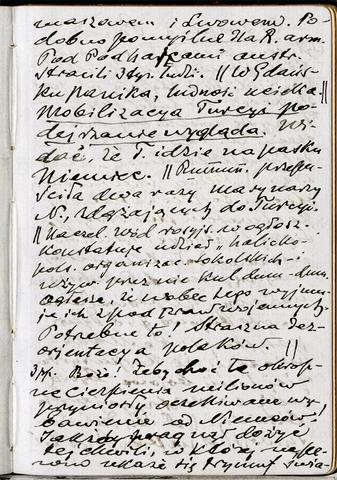 maszowem i Lwowem. Po-
dobno pomyślne dla R. arm.
Pod Podhajcami austr.
stracili 3 tys. ludzi. || W Gdańs-
ku panika, ludność ucieka. ||
Mobilizacya Turcyi po-
dejrzanie wygląda. Wi-
dać, że T. idzie na pasku
Niemiec. || Rumun. przepu-
ściła dwa razy marynarzy
N., zdążających do Turcyi.
|| Naczel. wódz rosyjs. w ogłosz.
konstatuje udział „halicko-
pols. organizac. sokolskich" i
używ. przez nie kul dum-dum.
ogłasza, że wobec tego wyjmu-
je ich z pod praw wojennych.
Potrzebne to! Straszna dez-
orientacya polaków ||
Boże! Żeby choć te okrop-
ne cierpienia milionów
przyniosły oczekiwane wy-
bawienie od Niemców!
dożyć
tej chwili, w której
się tryumf